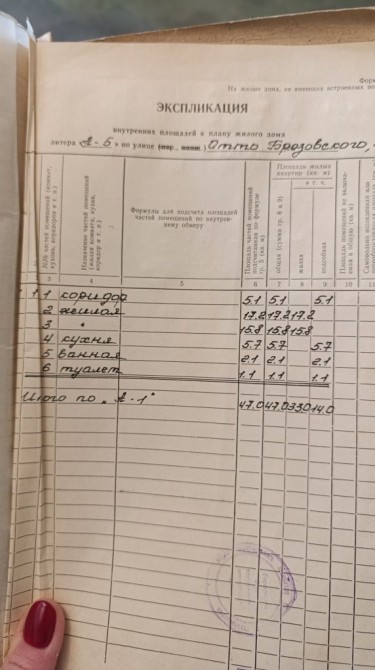 Форм
На жилые дома, не имеющие встроенных по
ЭКСПЛИКАЦИЯ
внутренних площадей к плану жилого дома
литера „А-Б" по улице (пер., площ.) Отто Брозовского,
№№ частей помещений (комнат, кухонь, коридоров и т. п.)
Назначение частей помещений (жилая комната, кухня, коридор и т. п.)
Формулы для подсчета площадей частей помещений по внутреннему обмеру
Площадь частей помещений подсчитанная по формуле гр. 5 (кв. м)
Площадь жилых квартир (кв. м)
общая (сумма гр. 8 и 9)
в т. ч.
жилая
подсобная
3 4 5 6 7 8 9 10 11
1.1 коридор 5.1 5.1 5.1
2 жилая 17.2 17.2 17.2
3 " 15.8 15.8 15.8
4 кухня 5.7 5.7 5.7
5 ванная 2.1 2.1 2.1
6 туалет 1.1 1.1 1.1
Итого по „А-1" 47.0 47.0 33.0 14.0